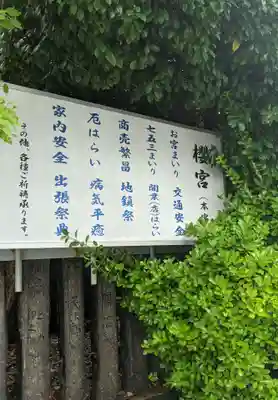 櫻宮
お宮まいり 交通安全
七五三まいり
商売繁昌 地鎮祭
厄はらい 病気平癒
家内安全 出張祭典
その他、各種ご祈祷承ります。